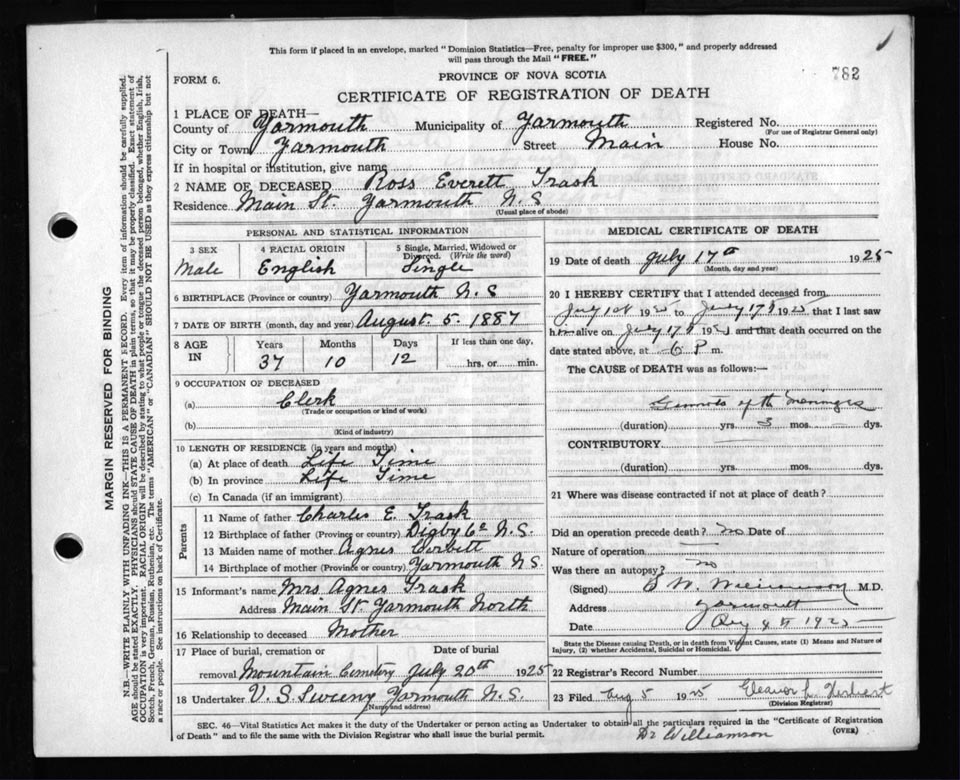 This form if placed in an envelope, marked "Dominion Statistics—Free, penalty for improper use $300," and properly addressed
will pass through the Mail "FREE."
782
FORM 6.
PROVINCE OF NOVA SCOTIA
CERTIFICATE OF REGISTRATION OF DEATH
1 PLACE OF DEATH—
County of Yarmouth Municipality of Yarmouth Registered No.
(For use of Registrar General only)
City or Town Yarmouth Street Main House No.
If in hospital or institution, give name
2 NAME OF DECEASED Ross Everett Trask
Residence Main St. Yarmouth N.S
(Usual place of abode)
PERSONAL AND STATISTICAL INFORMATION
3 SEX 4 RACIAL ORIGIN 5 Single, Married, Widowed or
Divorced. (Write the word)
Male English Single
6 BIRTHPLACE (Province or country) Yarmouth N.S
7 DATE OF BIRTH (month, day and year) August. 5. 1887
8 AGE IN Years Months Days If less than one day,
37 10 12 hrs. or min.
9 OCCUPATION OF DECEASED
(a) Clerk
(Trade or occupation or kind of work)
(b)
(Kind of industry)
10 LENGTH OF RESIDENCE (in years and months)
(a) At place of death Life Time
(b) In province Life Time
(c) In Canada (if an immigrant)
Parents
11 Name of father Charles E. Trask
12 Birthplace of father (Province or country) Digby Co N.S.
13 Maiden name of mother Agnes Corbett
14 Birthplace of mother (Province or country) Yarmouth N.S.
15 Informant's name Mrs Agnes Trask
Address Main St. Yarmouth North
16 Relationship to deceased Mother
17 Place of burial, cremation or Date of burial
removal Mountain Cemetery July 20th 1925
18 Undertaker V. S. Sweeny Yarmouth N.S.
(Name and address)
MEDICAL CERTIFICATE OF DEATH
19 Date of death July 17th 1925
(Month, day and year)
20 I HEREBY CERTIFY that I attended deceased from
July 1st 1925 to July 17th 1925 that I last saw
him alive on July 17th 1925 and that death occurred on
date stated above, at 6 P m.
The CAUSE of DEATH was as follows:—
of the meninges
(duration) yrs. 3 mos. dys.
CONTRIBUTORY
(duration) yrs. mos. dys.
21 Where was disease contracted if not at place of death?
Did an operation precede death? no Date of
Nature of operation
Was there an autopsy? no
(Signed) M.D.
Address Yarmouth
Date 4th 1925
State the Disease causing Death, or in death from Violent Causes, state (1) Means and Nature of
Injury, (2) whether Accidental, Suicidal or Homicidal.
22 Registrar's Record Number
23 Filed Aug 5 1925 Eleanor L. Herbert
(Division Registrar)
SEC. 46—Vital Statistics Act makes it the duty of the Undertaker or person acting as Undertaker to obtain all the particulars required in the "Certificate of Registration
of Death" and to file the same with the Division Registrar who shall issue the burial permit.
(OVER)
Dr Williamson
MARGIN RESERVED FOR BINDING
N.B.—WRITE PLAINLY WITH UNFADING INK—THIS IS A PERMANENT RECORD. Every item of information should be carefully supplied.
AGE should be stated EXACTLY. PHYSICIANS should STATE CAUSE OF DEATH in plain terms, so that it may be properly classified. Exact statement of
OCCUPATION is very important. RACIAL ORIGIN will be described by stating to what people or tongue the deceased person belonged, whether English, Irish,
Scotch, French, German, Russian, Ruthenian, etc. The terms "AMERICAN" or "CANADIAN" SHOULD NOT BE USED as they express citizenship but not
a race or people. See instructions on back of Certificate.